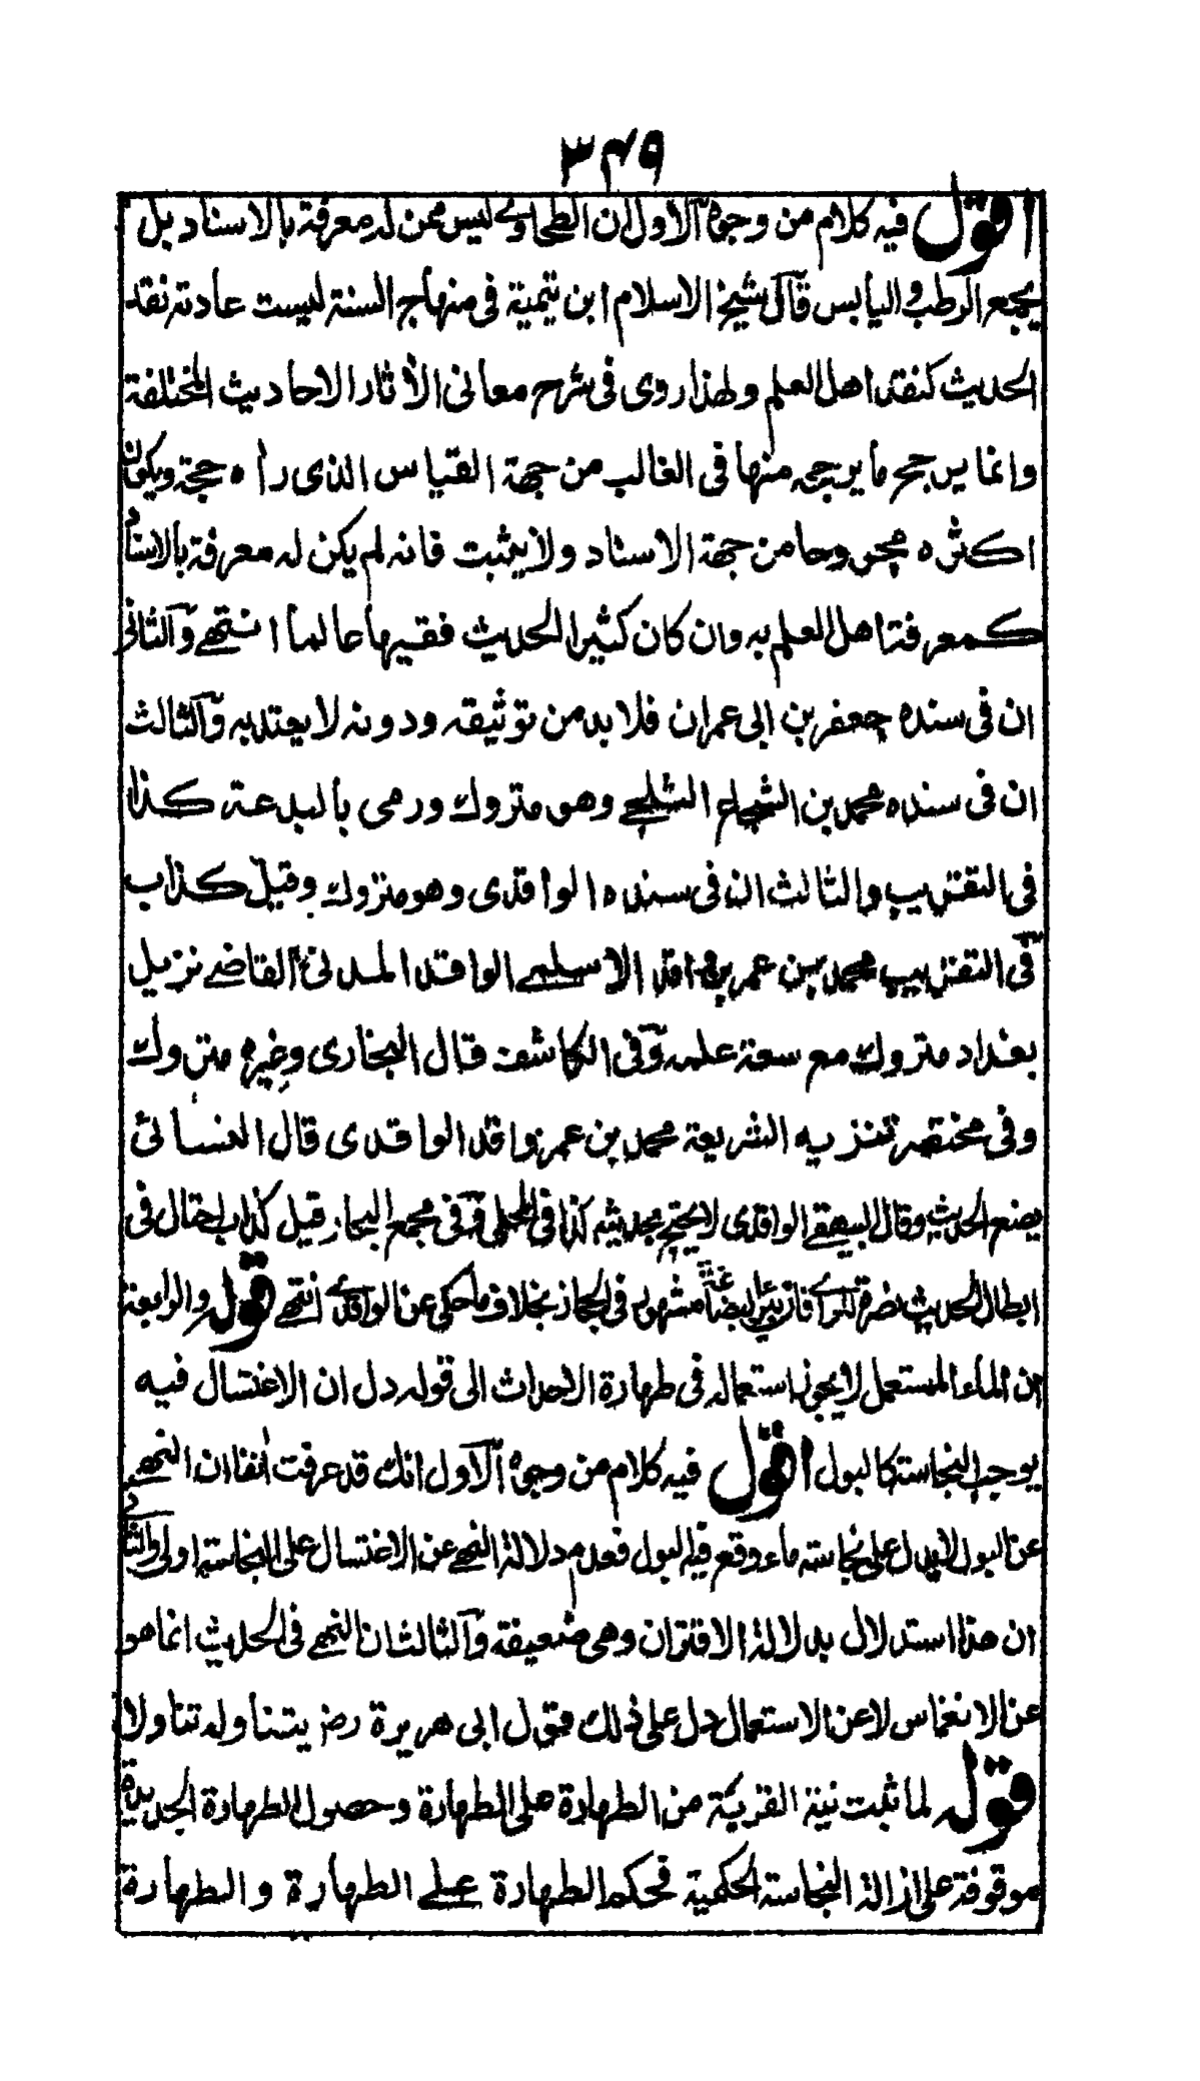 ۳۴۹
اقول فيه كلام من وجوه الاول ان الطحاوي ليس ممن له معرفة بالاسناد بل
يجمع الرطب واليابس قال شيخ الاسلام ابن تيمية فى منهاج السنة ليست عادته نقد
الحديث كنقد اهل العلم ولهذا روى فى شرح معانى الاثار الاحاديث المختلفة
وانما يرجح ما يرجحه منها فى الغالب من جهة القياس الذى راه حجة ويكون
اكثره مجروحا من جهة الاسناد ولا يثبت فانه لم يكن له معرفة بالاسناد
كمعرفة اهل العلم به وان كان كثير الحديث فقيها عالما انتهے والثانى
ان فى سنده جعفر بن ابى عمران فلا بد من توثيقه ودونه لا يعتد به والثالث
ان فى سنده محمد بن الشجاع الثلجے وهو متروك ورمى بالبدعة كذا
فى التقريب والثالث ان فى سنده الواقدى وهو متروك وقيل كذاب
فى التقريب محمد بن عمر بن واقد الاسلمے الواقد المدنى القاضے نزيل
بغداد متروك مع سعة علمه وفى الكاشف قال البخارى وغيره متروك
وفى مختصر تنزيه الشريعة محمد بن عمر واقد الواقدى قال النسائى
يضع الحديث وقال البيهقے الواقدى لا يحتج بحديثه كذا فى المحلى وفى مجمع البحار قيل كذاب احتال فى
ابطال الحديث نصرة للراے فان بئر بضاعة مشهور فى الحجاز بخلاف ما حكى عن الواقدے انتهے قوله والرابعة
ان الماء المستعمل لا يجوز استعماله فى طهارة الاحداث الى قوله دل ان الاغتسال فيه
يوجب النجاسة كالبول اقول فيه كلام من وجوه الاول انك قد عرفت انفا ان النهے
عن البول لا يدل على نجاسة ماء وقع فيه البول فعدم دلالة النهے عن الاغتسال على النجاسة اولى والثانے
ان هذا استدلال بدلالة الاقتران وهى ضعيفة والثالث ان النهے فى الحديث انما هو
عن الانغماس لا عن الاستعمال دل على ذلك قول ابى هريرة رضـ يتناوله تناولا
قوله لما ثبت نية القربة من الطهارة على الطهارة وحصول الطهارة الجديدة
موقوفة على ازالة النجاسة الحكمية فحكم الطهارة علے الطهارة والطهارة